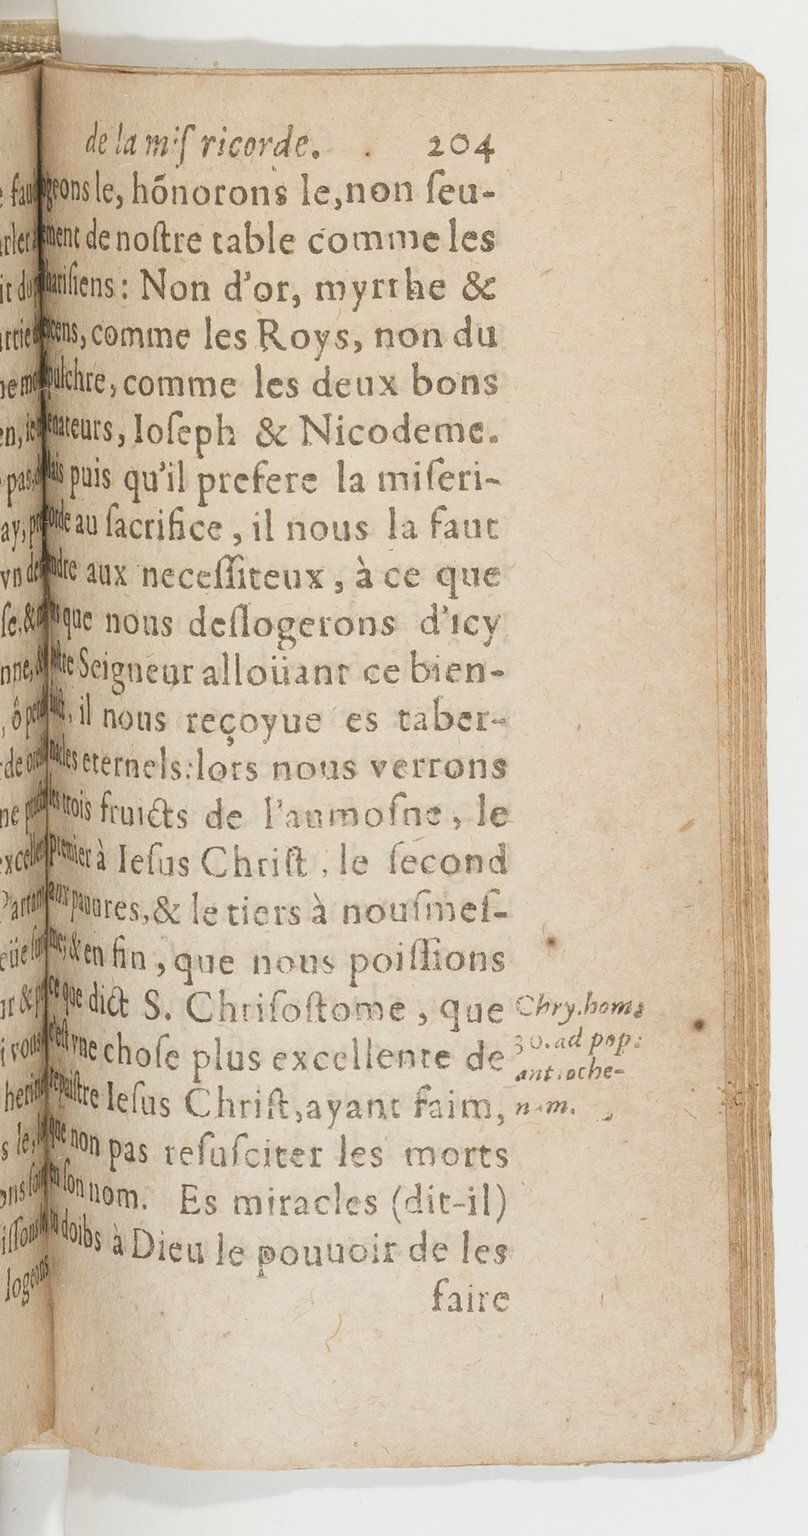 de la miſricorde. 204
geons le, hõnorons le, non ſeu-
ment de noſtre table comme les
hariſiens: Non d'or, myrrhe &
cens, comme les Roys, non du
pulchre, comme les deux bons
nateurs, Ioſeph & Nicodeme.
ais puis qu'il prefere la miſeri-
orde au ſacrifice, il nous la faut
ndre aux neceſſiteux, à ce que
que nous deſlogerons d'icy
ſtre Seigneur alloüant ce bien-
il nous reçoyue es taber-
les eternels: lors nous verrons
les trois fruicts de l'aumoſne, le
premier à Ieſus Chriſt, le ſecond
aux pauures, & le tiers à nouſmeſ-
& en fin, que nous poiſſions
ce que dict S. Chriſoſtome, que
c'eſt vne choſe plus excellente de
repaiſtre Ieſus Chriſt, ayant faim,
que non pas reſuſciter les morts
en ſon nom. Es miracles (dit-il)
doibs à Dieu le pouuoir de les
faire
Chry. hom.
30. ad pop.
ant. oche-
n m.